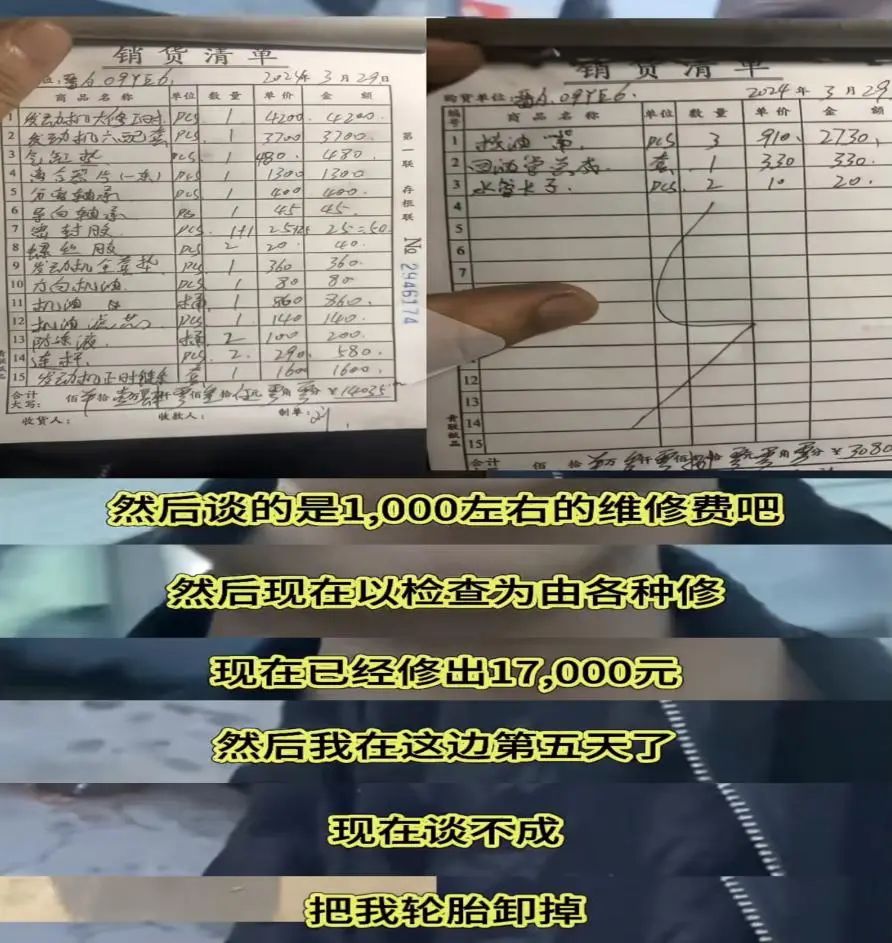 销货清单
晋A.09YE6. 2024年3月29日
商品名称 单位 数量 单价 金额
1 发动机大修工时 PCS 1 4200 4200
2 发动机六配套 PCS 1 3700 3700
3 气缸垫 PCS 1 480 480
4 离合器片(一套) PCS 1 1300 1300
5 分离轴承 PCS 1 400 400
6 导向轴承 PCS 1 45 45
7 密封胶 PCS 1+1 25+25=50
8 螺丝胶 PCS 2 20 40
9 发动机全车垫 PCS 1 360 360
10 方向机油 PCS 1 80 80
11 机油 桶 1 860 860
12 机油滤芯 PCS 1 140 140
13 防冻液 桶 2 100 200
14 连杆 PCS 2 290 580
15 发动机正时链条 套 1 1600 1600
合计大写: 佰 拾 ¥14035
收货人: 收款人: 制单:
第一联 存根联
No 2946174
销货清单
购货单位:晋A.09YE6. 2024年3月29
编号 商品名称 单位 数量 单价 金额
1 喷油嘴 PCS 3 910 2730
2 回油管总成 套 1 330 330
3 水管卡子 PCS 2 10 20
4
5
6
7
12
13
14
15
合计 佰 拾 ¥3080
然后谈的是1,000左右的维修费吧
然后现在以检查为由各种修
现在已经修出17,000元
然后我在这边第五天了
现在谈不成
把我轮胎卸掉